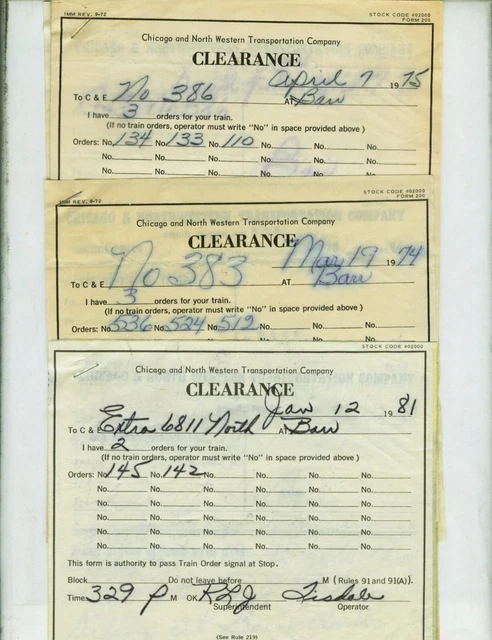 1MM REV. 9-72 STOCK CODE #02000
FORM 200
Chicago and North Western Transportation Company
CLEARANCE
April 7 1975
To C & E No 386 AT Barr
I have 3 orders for your train.
(If no train orders, operator must write "No" in space provided above)
Orders: No. 134 No. 133 No. 110 No. No. No.
No. No. No. No. No. No.
No. No. No. No. No. No.
1MM REV. 9-72 STOCK CODE #02000
FORM 200
Chicago and North Western Transportation Company
CLEARANCE
Mar 19 1974
To C & E No 383 AT Barr
I have 3 orders for your train.
(If no train orders, operator must write "No" in space provided above)
Orders: No. 536 No. 524 No. 512 No. No. No.
No. No.
STOCK CODE #02000
Chicago and North Western Transportation Company
CLEARANCE
Jan 12 1981
To C & E Extra 6811 North At Barr
I have 2 orders for your train.
(If no train orders, operator must write "No" in space provided above)
Orders: No. 145 No. 142 No. No. No. No.
No. No. No. No. No. No.
No. No. No. No. No. No.
No. No. No. No. No. No.
No. No. No. No. No. No.
No. No. No. No. No. No.
This form is authority to pass Train Order signal at Stop.
Block Do not leave before M (Rules 91 and 91(A)).
Time 329 P M OK RLJ Tisdale
Superintendent Operator
(See Rule 219)